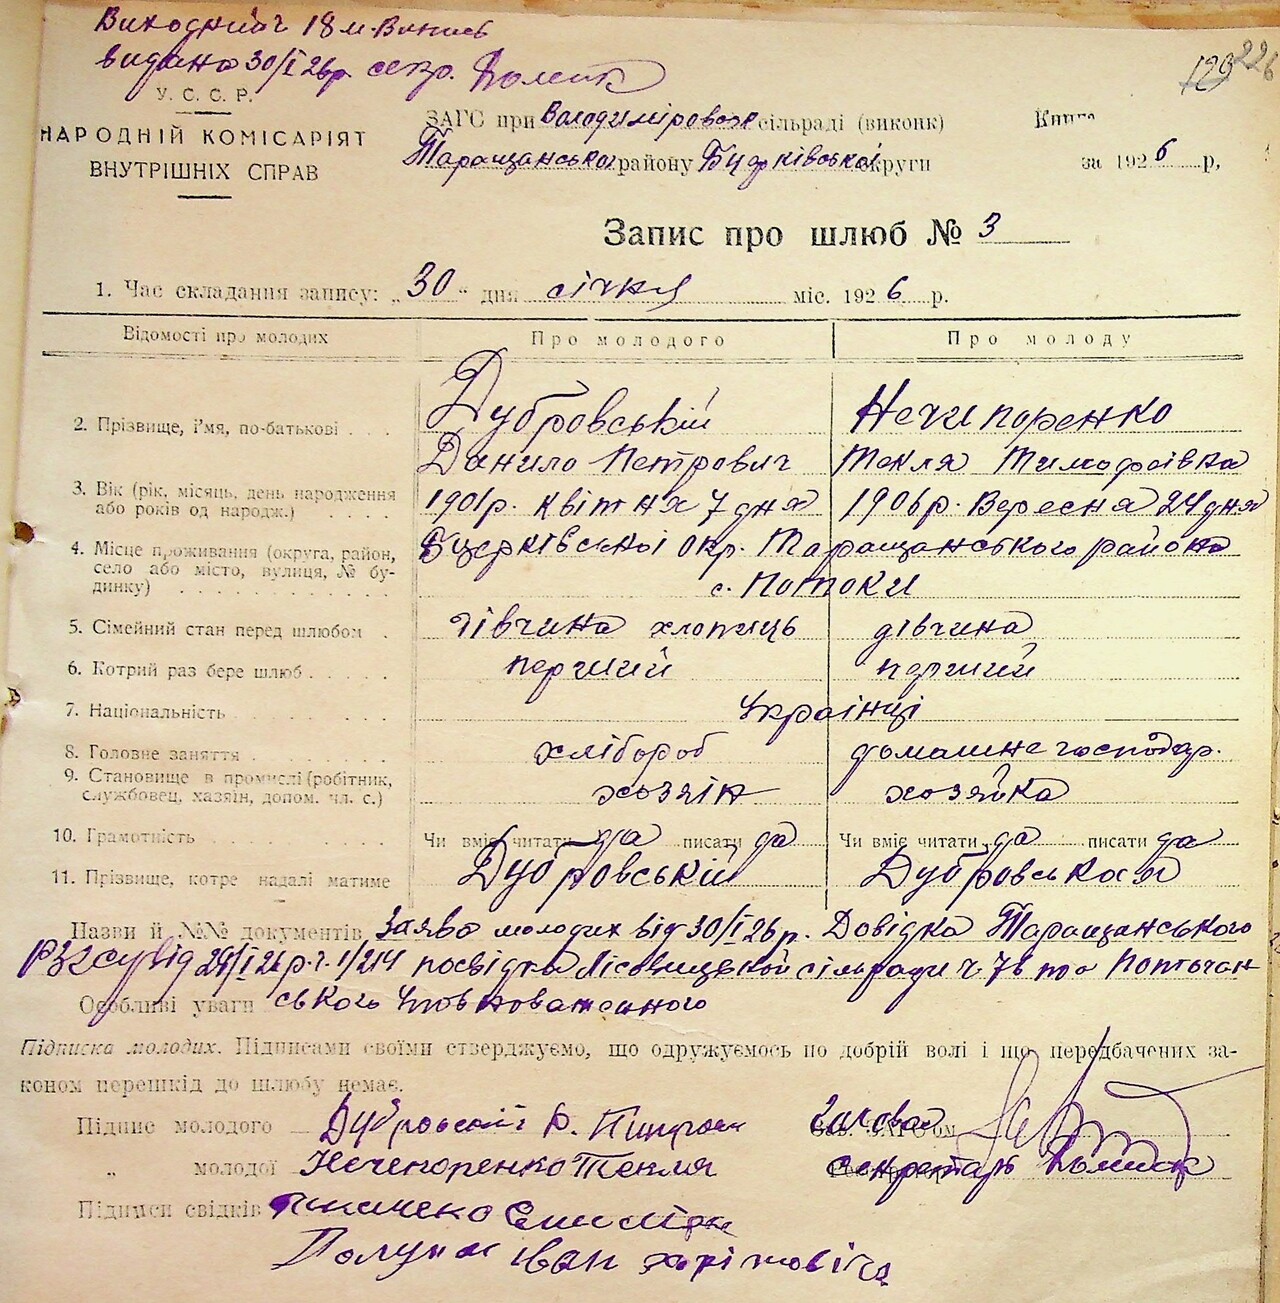 Виходний ч 18 м. Випись
видана 30/I 26р. секр.
129 226
У. С. С. Р.
НАРОДНІЙ КОМІСАРІЯТ
ВНУТРІШНІХ СПРАВ
ЗАГС при Володиміровск сільраді (виконк)
Книга
Таращанського району Бцерківської округи
за 1926 р,
Запис про шлюб № 3
1. Час складання запису: „30“ дня січня міс. 1926 р.
Відомості про молодих Про молодого Про молоду
2. Прізвище, і'мя, по-батькові Дубровський Нечипоренко
Данило Петрович Текля Тимофіівка
3. Вік (рік, місяць, день народження або років од народж.) 1901р. квітня 7 дня 1906р. Вересня 24 дня
4. Місце проживання (округа, район, село або місто, вулиця, № будинку) Бцерківської окр. Таращанського района
с. Потоки
5. Сімейний стан перед шлюбом дівчина хлопиць дівчина
6. Котрий раз бере шлюб перший перший
7. Національність Українці
8. Головне заняття хлібороб домашне господар.
9. Становище в промислі (робітник, службовец, хазяін, допом. чл. с.) хозяін хозяйка
10. Грамотність Чи вміє читати да писати да Чи вміє читати да писати да
11. Прізвище, котре надалі матиме Дубровський Дубровская
Назви й №№ документів Заява молодих від 30/I 26р. Довідка Таращанського
від 1/214 посвідка Лісовицької сільради ч. 76 та Поточан
Особливі уваги ського Уповноваженого
Підписка молодих. Підписами своїми стверджуємо, що одружуємось по добрій волі і що передбачених за-
коном перешкід до шлюбу немає.
Підпис молодого Дубровский Голова
„ молодої Неченоренко Текля секретарь
Підписи свідків
Іван